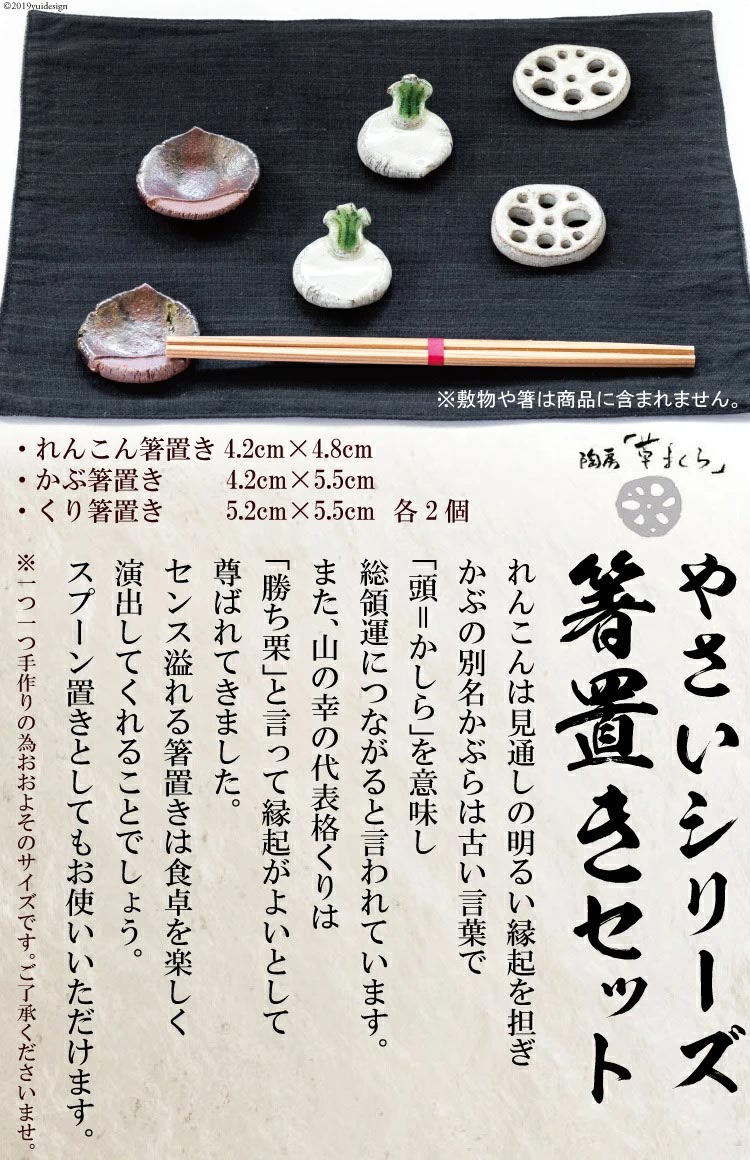 ©2019yuidesign
※敷物や箸は商品に含まれません。
・れんこん箸置き 4.2cm×4.8cm
・かぶ箸置き 4.2cm×5.5cm
・くり箸置き 5.2cm×5.5cm 各2個
陶房「草まくら」
やさいシリーズ
箸置きセット
れんこんは見通しの明るい縁起を担ぎ
かぶの別名かぶらは古い言葉で
「頭＝かしら」を意味し
総領運につながると言われています。
また、山の幸の代表格くりは
「勝ち栗」と言って縁起がよいとして
尊ばれてきました。
センス溢れる箸置きは食卓を楽しく
演出してくれることでしょう。
スプーン置きとしてもお使いいただけます。
※一つ一つ手作りの為おおよそのサイズです。ご了承くださいませ。